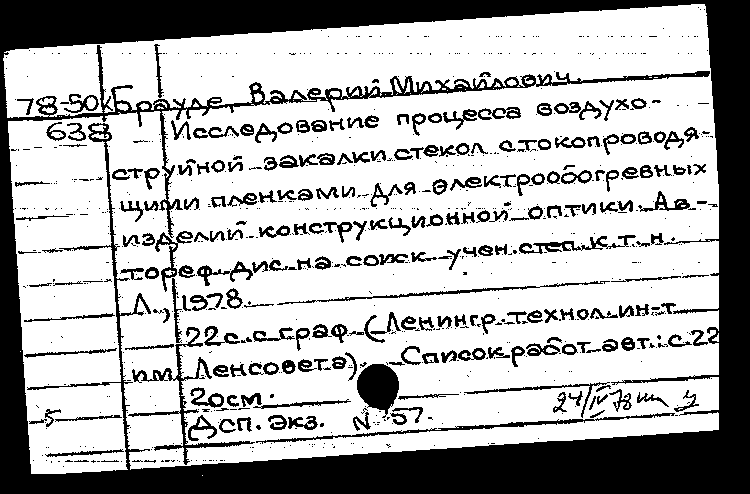 78-50к Брауде, Валерий Михайлович.
638 Исследование процесса воздухо-
струйной закалки стекол с токопроводя-
щими пленками для электрообогревных
изделий конструкционной оптики. Ав-
тореф. дис. на соиск. учен. степ. к. т. н.
Л., 1978.
22с. с граф. (Ленингр. технол. ин-т
им. Ленсовета). Список работ авт.: с. 22
20см.
5 Дсп. Экз. N 57.